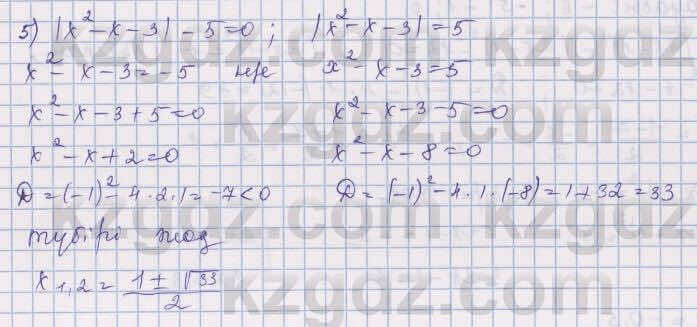 5) |x² - x - 3| - 5 = 0 ; |x² - x - 3| = 5
x² - x - 3 = -5 не x² - x - 3 = 5
x² - x - 3 + 5 = 0 x² - x - 3 - 5 = 0
x² - x + 2 = 0 x² - x - 8 = 0
D = (-1)² - 4 · 2 · 1 = -7 < 0 D = (-1)² - 4 · 1 · (-8) = 1 + 32 = 33
түбірі жоқ
x₁,₂ = (1 ± √33)/2
kzgdz.com
kzgdz.com
kzgdz.com